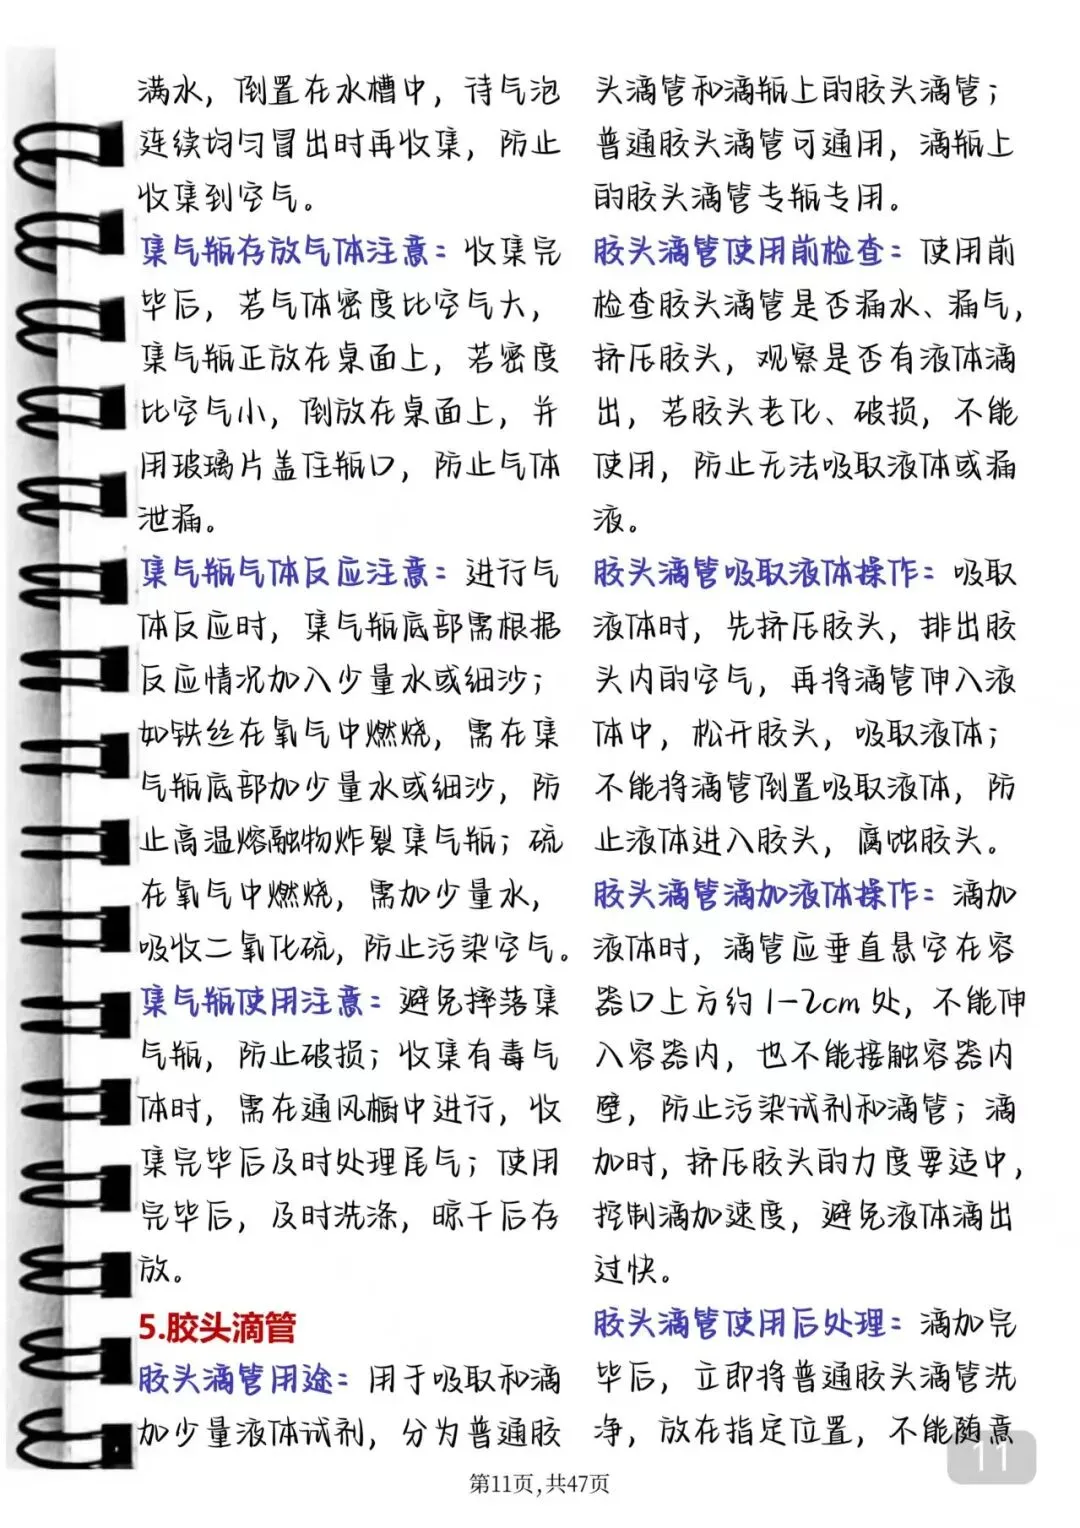 满水，倒置在水槽中，待气泡
连续均匀冒出时再收集，防止
收集到空气。
集气瓶存放气体注意：收集完
毕后，若气体密度比空气大，
集气瓶正放在桌面上，若密度
比空气小，倒放在桌面上，并
用玻璃片盖住瓶口，防止气体
泄漏。
集气瓶气体反应注意：进行气
体反应时，集气瓶底部需根据
反应情况加入少量水或细沙；
如铁丝在氧气中燃烧，需在集
气瓶底部加少量水或细沙，防
止高温熔融物炸裂集气瓶；硫
在氧气中燃烧，需加少量水，
吸收二氧化硫，防止污染空气。
集气瓶使用注意：避免摔落集
气瓶，防止破损；收集有毒气
体时，需在通风橱中进行，收
集完毕后及时处理尾气；使用
完毕后，及时洗涤，晾干后存
放。
5.胶头滴管
胶头滴管用途：用于吸取和滴
加少量液体试剂，分为普通胶
头滴管和滴瓶上的胶头滴管；
普通胶头滴管可通用，滴瓶上
的胶头滴管专瓶专用。
胶头滴管使用前检查：使用前
检查胶头滴管是否漏水、漏气，
挤压胶头，观察是否有液体滴
出，若胶头老化、破损，不能
使用，防止无法吸取液体或漏
液。
胶头滴管吸取液体操作：吸取
液体时，先挤压胶头，排出胶
头内的空气，再将滴管伸入液
体中，松开胶头，吸取液体；
不能将滴管倒置吸取液体，防
止液体进入胶头，腐蚀胶头。
胶头滴管滴加液体操作：滴加
液体时，滴管应垂直悬空在容
器口上方约1-2cm处，不能伸
入容器内，也不能接触容器内
壁，防止污染试剂和滴管；滴
加时，挤压胶头的力度要适中，
控制滴加速度，避免液体滴出
过快。
胶头滴管使用后处理：滴加完
毕后，立即将普通胶头滴管洗
净，放在指定位置，不能随意
11
第11页,共47页